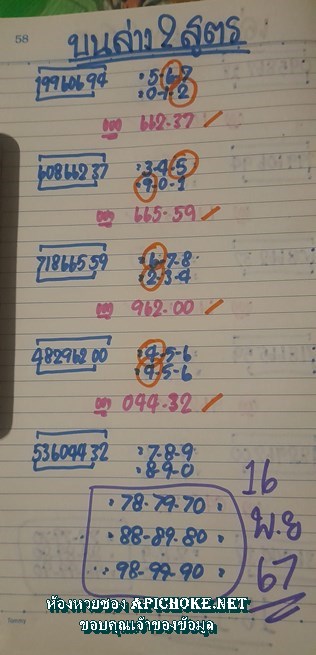 58
บนล่าง 2 สูตร
19960694
:5-6-7
:0-1-2
662-37
60866237
:3-4-5
:9-0-1
665-59
71866559
:6-7-8
:2-3-4
962-00
48296200
:4-5-6
:4-5-6
094-32
53609432
:7-8-9
:8-9-0
:78-79-70
:88-89-80
:98-99-90
16
พ.ย
67
ห้องหวยซอง APICHOKE.NET
ขอบคุณเจ้าของข้อมูล